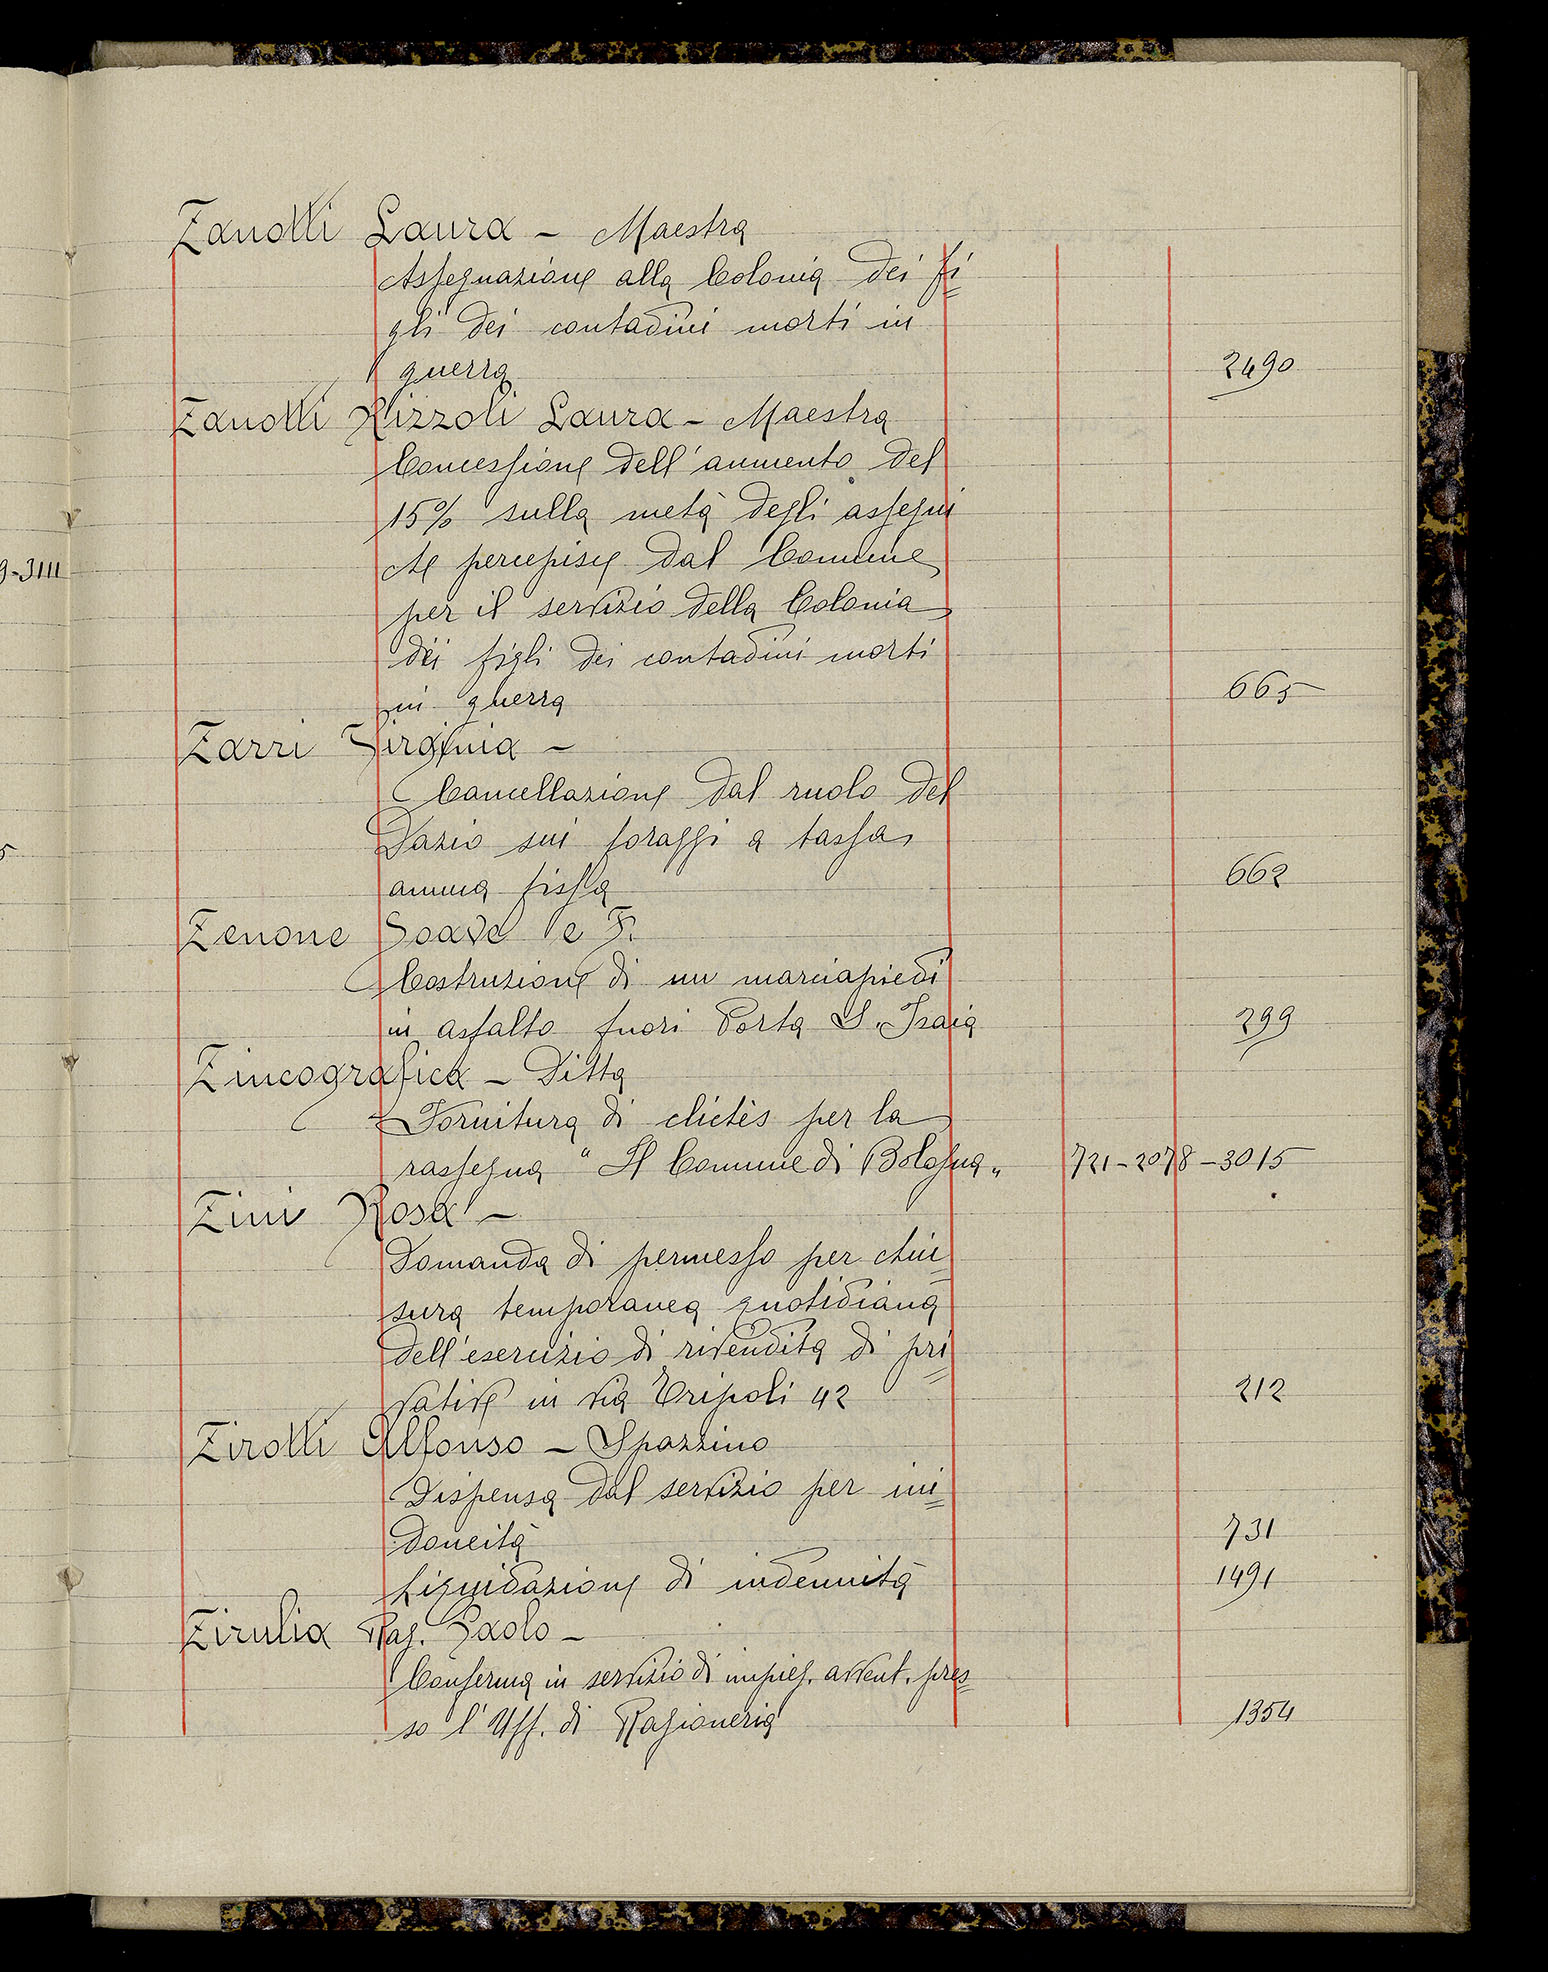 Zanotti Laura - Maestra
Assegnazione alla Colonia dei fi=
gli dei contadini morti in
guerra 2490
Zanotti Rizzoli Laura - Maestra
Concessione dell'aumento del
15% sulla metà degli assegni
che percepisce dal Comune
9-3111
per il servizio della Colonia
dei figli dei contadini morti
in guerra 665
Zarri Virginia -
Cancellazione dal ruolo del
Dazio sui foraggi a tassa
annua fissa 662
Zenone Soave e F.
Costruzione di un marciapiedi
in asfalto fuori Porta S. Isaia 299
Zincografica - Ditta
Fornitura di clichès per la
rassegna "Il Comune di Bologna„ 721-2078-3015
Zini Rosa -
Domanda di permesso per chiu=
sura temporanea quotidiana
dell'esercizio di rivendita di pri=
vative in via Tripoli 42 212
Zirotti Alfonso - Spazzino
Dispensa dal servizio per ini=
doneità 731
Liquidazione di indennità 1491
Zirulia Rag. Paolo -
Conferma in servizio di impieg. avvent. pres=
so l'Uff. di Ragioneria 1354